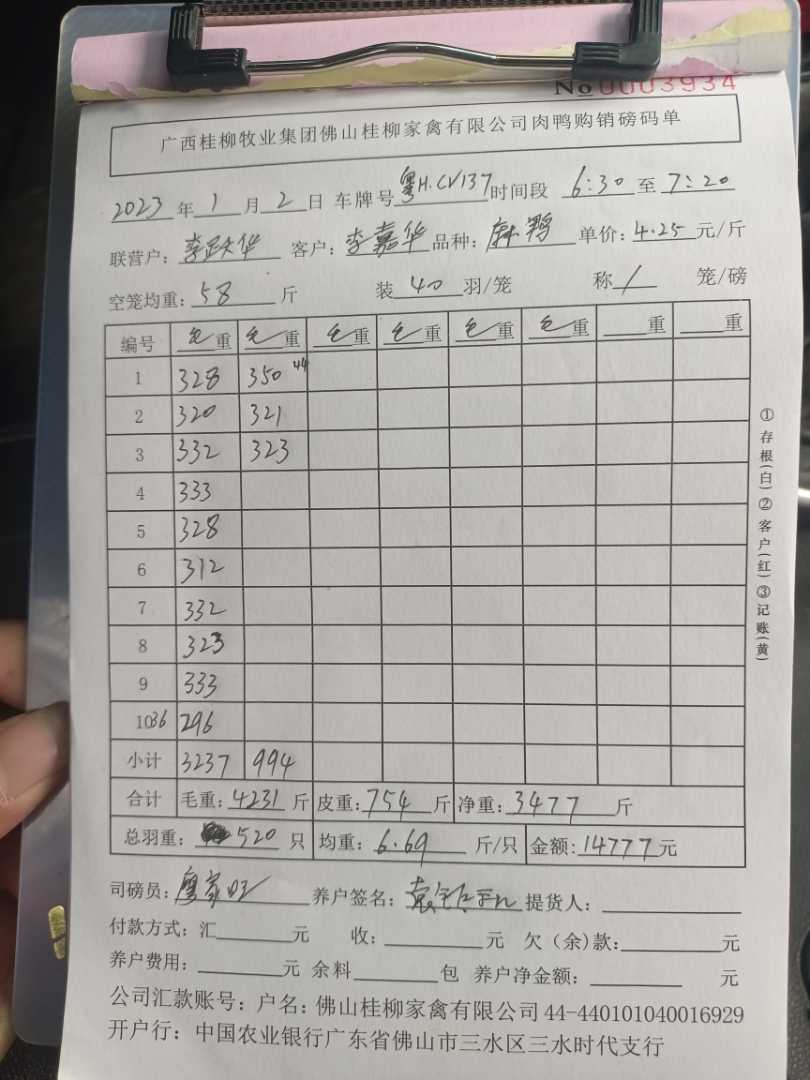 No 0003934
广西桂柳牧业集团佛山桂柳家禽有限公司肉鸭购销磅码单
2023 年 1 月 2 日 车牌号 粤H.CV137 时间段 6:30 至 7:20
联营户: 华 客户: 李嘉华 品种: 麻鸭 单价: 4.25 元/斤
空笼均重: 58 斤 装 40 羽/笼 称 1 笼/磅
编号 毛重 毛重 毛重 毛重 毛重 毛重 重 重
1 328 350 44
2 320 321
3 332 323
4 333
5 328
6 312
7 332
8 323
9 333
10 36 296
小计 3237 994
合计 毛重: 4231 斤 皮重: 754 斤 净重: 3477 斤
总羽重: 520 只 均重: 6.69 斤/只 金额: 14777 元
司磅员: 养户签名: 提货人:
付款方式: 汇 元 收: 元 欠(余)款: 元
养户费用: 元 余料 包 养户净金额: 元
公司汇款账号: 户名: 佛山桂柳家禽有限公司 44-440101040016929
开户行: 中国农业银行广东省佛山市三水区三水时代支行
①存根(白)②客户(红)③记账(黄)